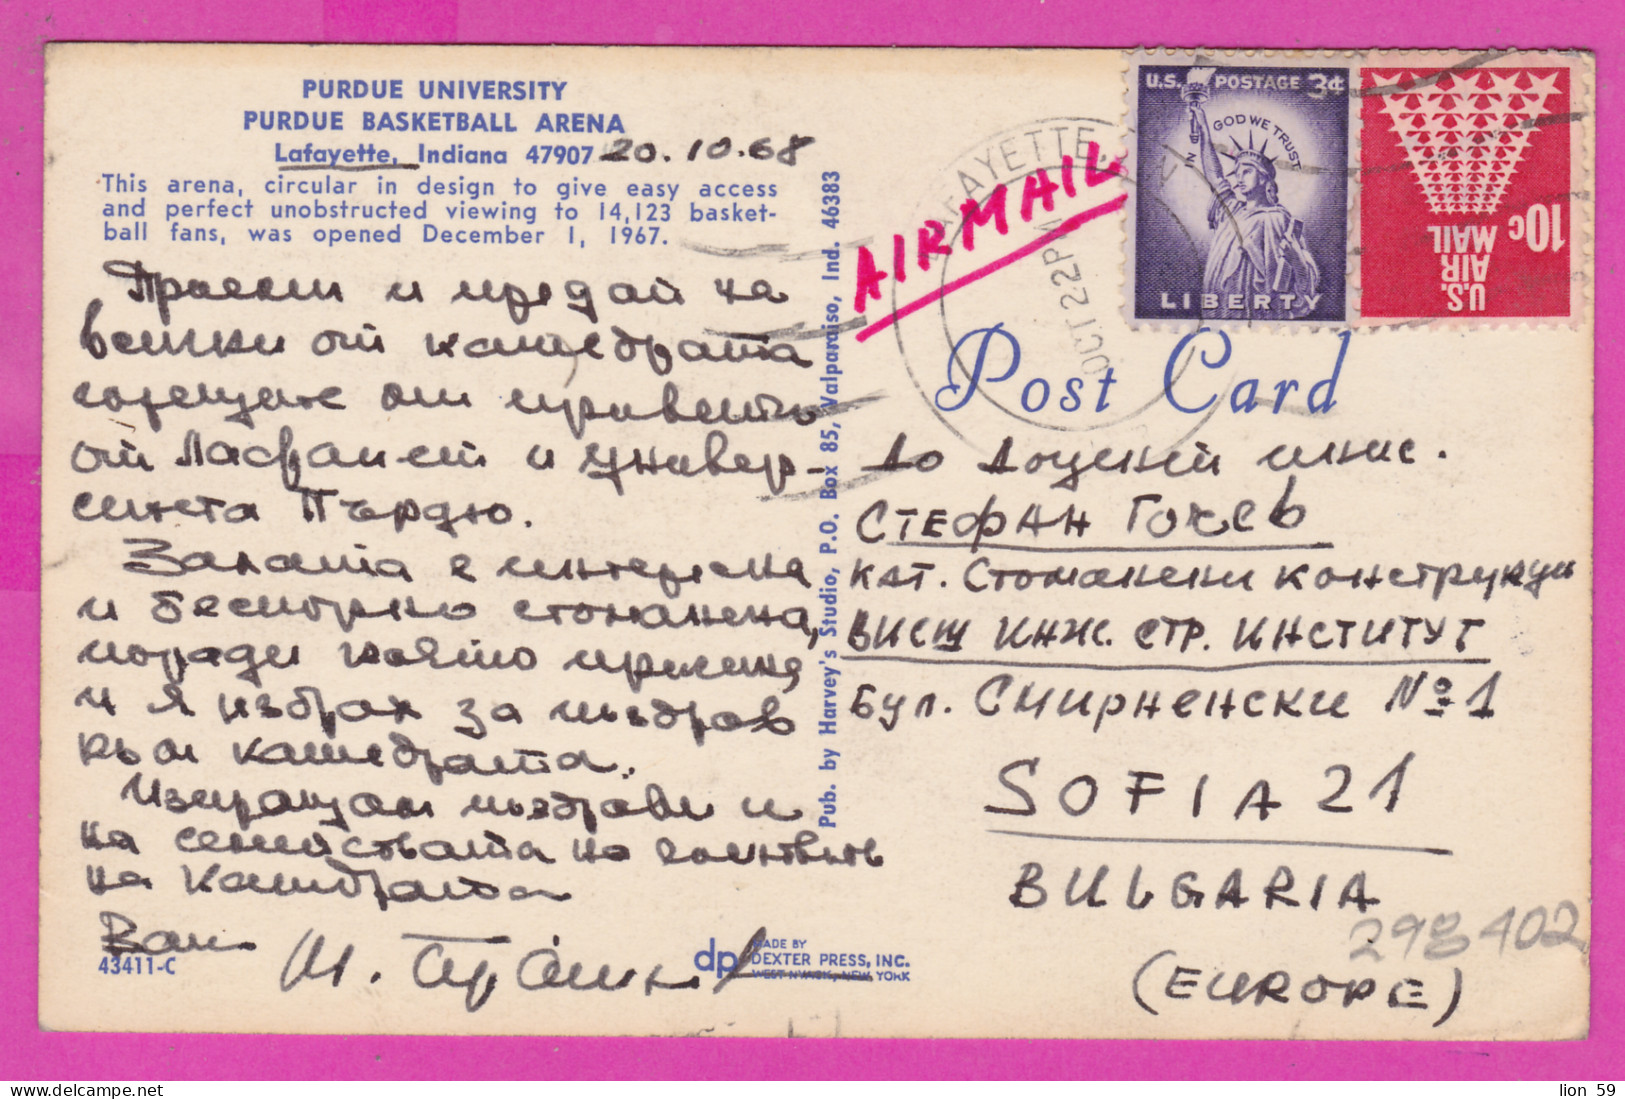 PURDUE UNIVERSITY
PURDUE BASKETBALL ARENA
Lafayette, Indiana 47907 20.10.68
This arena, circular in design to give easy access
and perfect unobstructed viewing to 14,123 basket-
ball fans, was opened December 1, 1967.
Приеми и предай на
всички от катедрата
горещите ми привети
от Лафайет и Универ-
ситета Пърдю.
Залата е интересна
и безспорно стоманена,
поради която причина
и я избрах за поздрав
към катедрата.
Изпращам поздрави и
на семействата на колективът
на катедрата
Ваш
43411-C
dp MADE BY
DEXTER PRESS, INC.
WEST NYACK, NEW YORK
Pub. by Harvey's Studio, P.O. Box 85, Valparaiso, Ind. 46383
AIRMAIL
LAFAYETTE,
OCT 22 PM
U.S. POSTAGE 3¢
IN GOD WE TRUST
LIBERTY
10c
U.S.
AIR
MAIL
Post Card
До доцент инж.
СТЕФАН Гочев
кат. Стоманени конструкции
ВИСШ ИНЖ. СТР. ИНСТИТУТ
Бул. Смирненски №1
SOFIA 21
BULGARIA
298402
(EUROPE)
lion 59